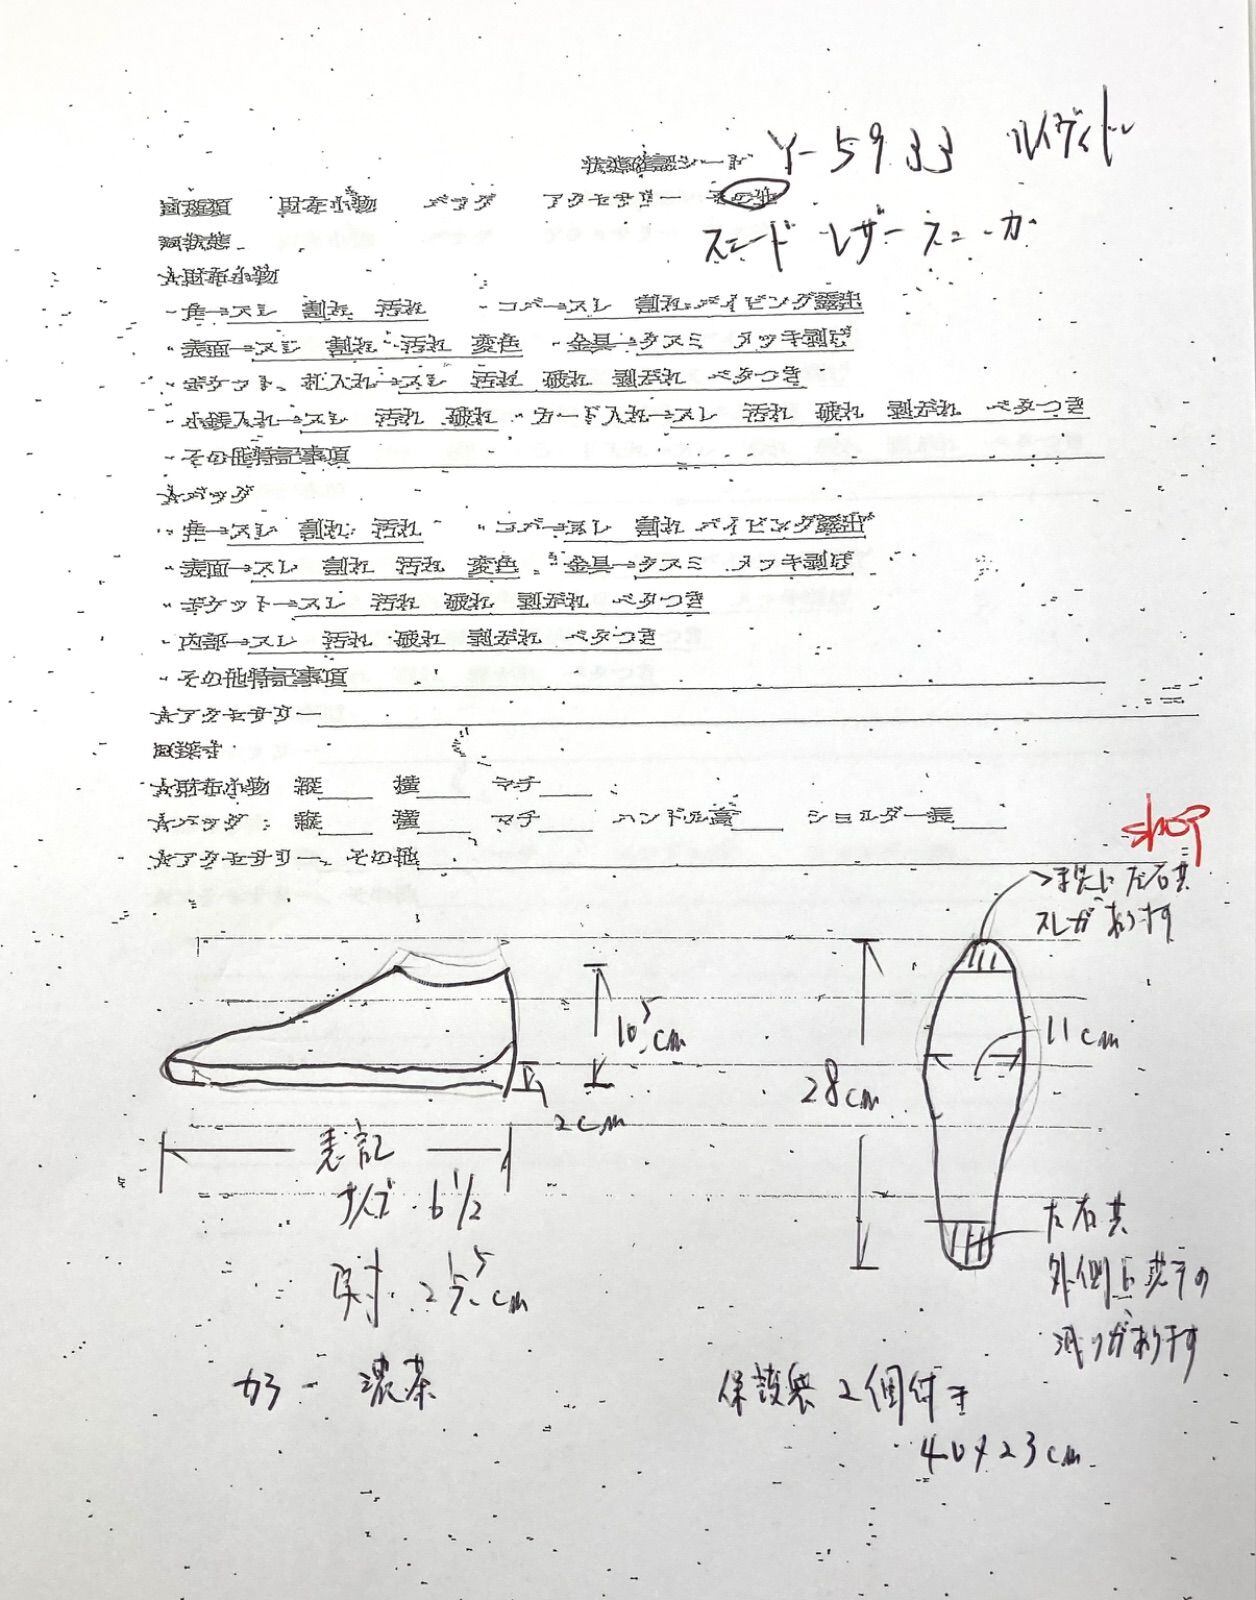 状態確認シード Y-5933 ルイヴィトン
□種類 財布小物 バッグ アクセサリー その他
スエード レザースニーカー
□状態
☆財布小物
・角→スレ 割れ 汚れ ・コバ→スレ 割れ パイピング露出
・表面→スレ 割れ 汚れ 変色 ・金具→クスミ メッキ剥げ
・ポケット、札入れ→スレ 汚れ 破れ 剥がれ ベタつき
・小銭入れ→スレ 汚れ 破れ ・カード入れ→スレ 汚れ 破れ 剥がれ ベタつき
・その他特記事項
☆バッグ
・角→スレ 割れ 汚れ ・コバ→スレ 割れ パイピング露出
・表面→スレ 割れ 汚れ 変色 ・金具→クスミ メッキ剥げ
・ポケット→スレ 汚れ 破れ 剥がれ ベタつき
・内部→スレ 汚れ 破れ 剥がれ ベタつき
・その他特記事項
☆アクセサリー
□採寸
☆財布小物 縦 横 マチ
☆バッグ: 縦 横 マチ ハンドル高 ショルダー長
☆アクセサリー、その他
shop
左右共
スレがあります
10.5cm
11cm
28cm
2cm
表記
サイズ 6 1/2
実寸 25.5cm
左右共
外側に
減りがあります
カラー 濃茶
保護袋 2個付き
40×23cm